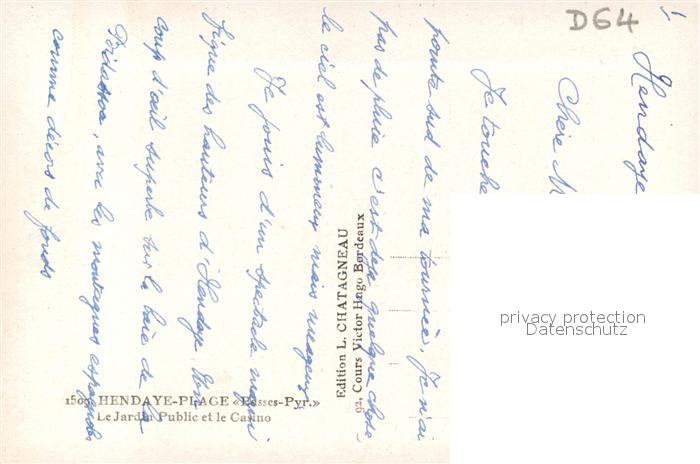 D64
Hendaye
Chère M
Je touche
pointe sud de ma tournée. Je n'ai
pas de pluie c'est déjà quelque chose
le ciel est lumineux mais nuageux
Je jouis d'un spectacle magni
fique des hauteurs d'Hendaye
coup d'œil superbe sur la baie de la
Bidassoa, avec les montagnes espagnoles
comme décors de fonds
Edition L. CHATAGNEAU
92, Cours Victor Hugo Bordeaux
1509 HENDAYE-PLAGE «Basses-Pyr.»
Le Jardin Public et le Casino
privacy protection
Datenschutz